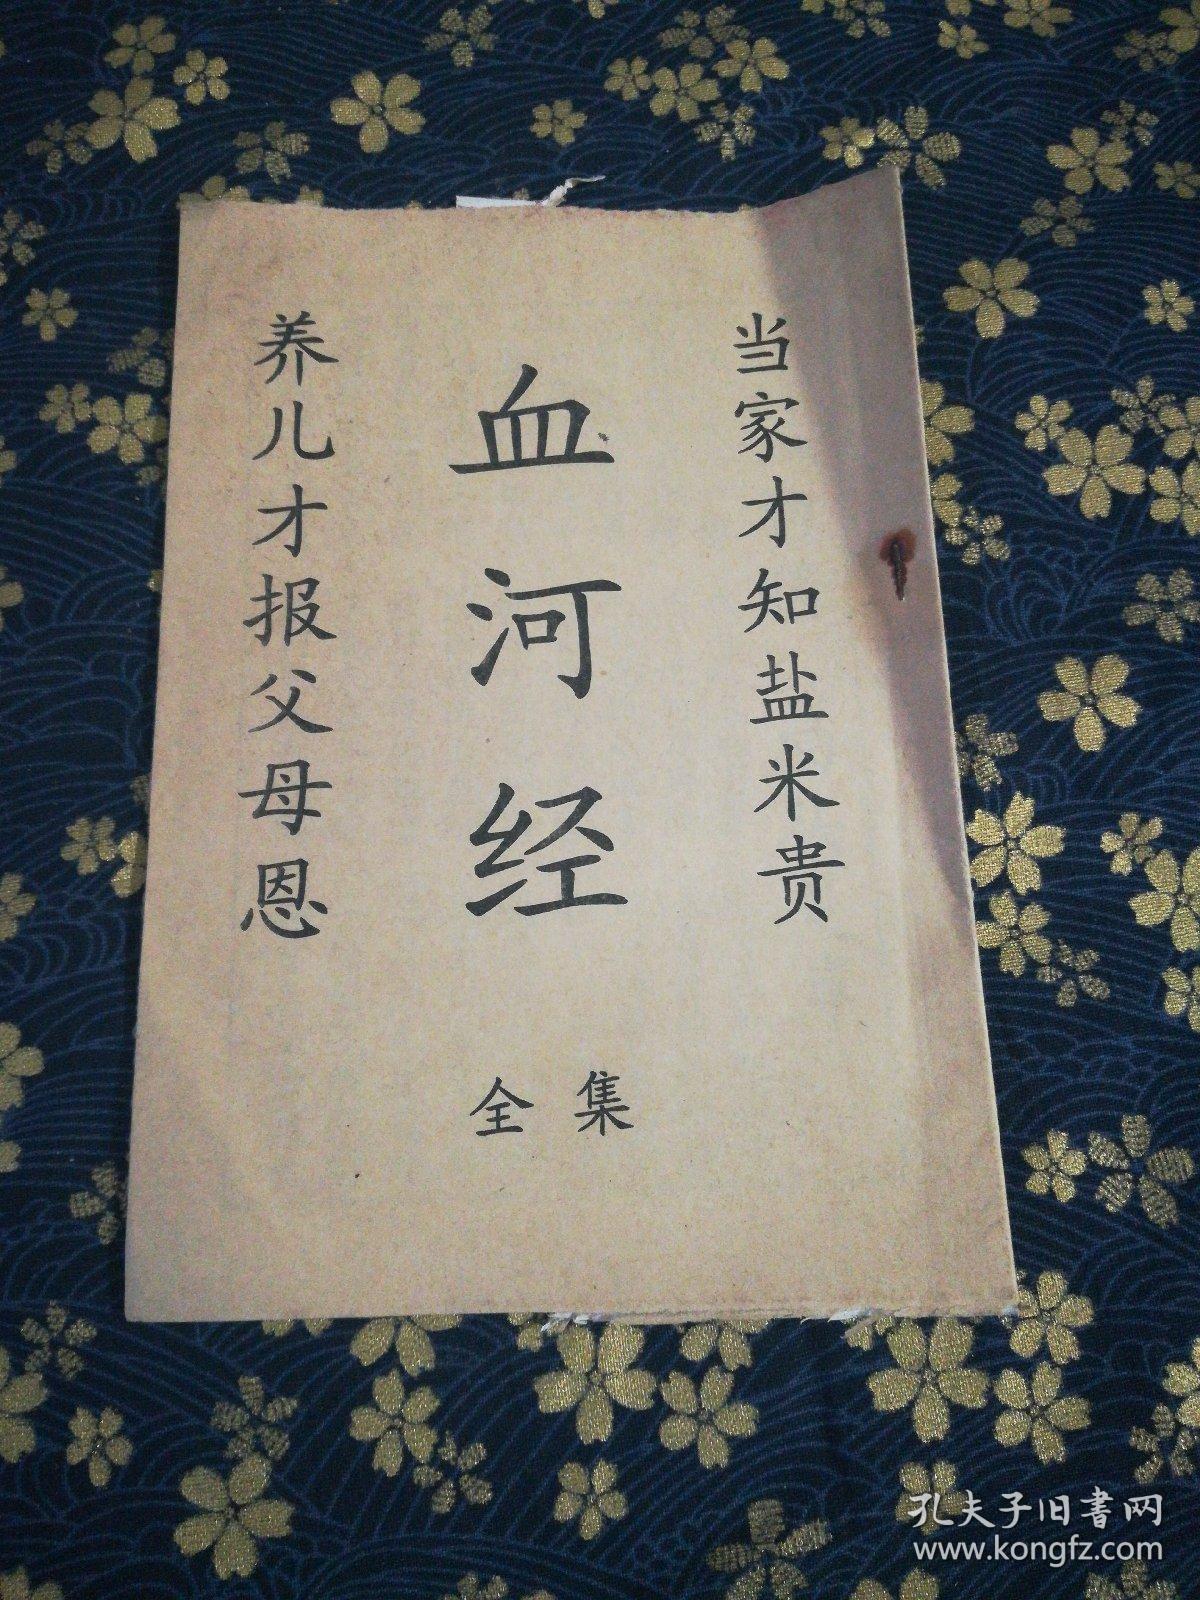 当家才知盐米贵
血河经
全集
养儿才报父母恩
孔夫子旧書网
www.kongfz.com